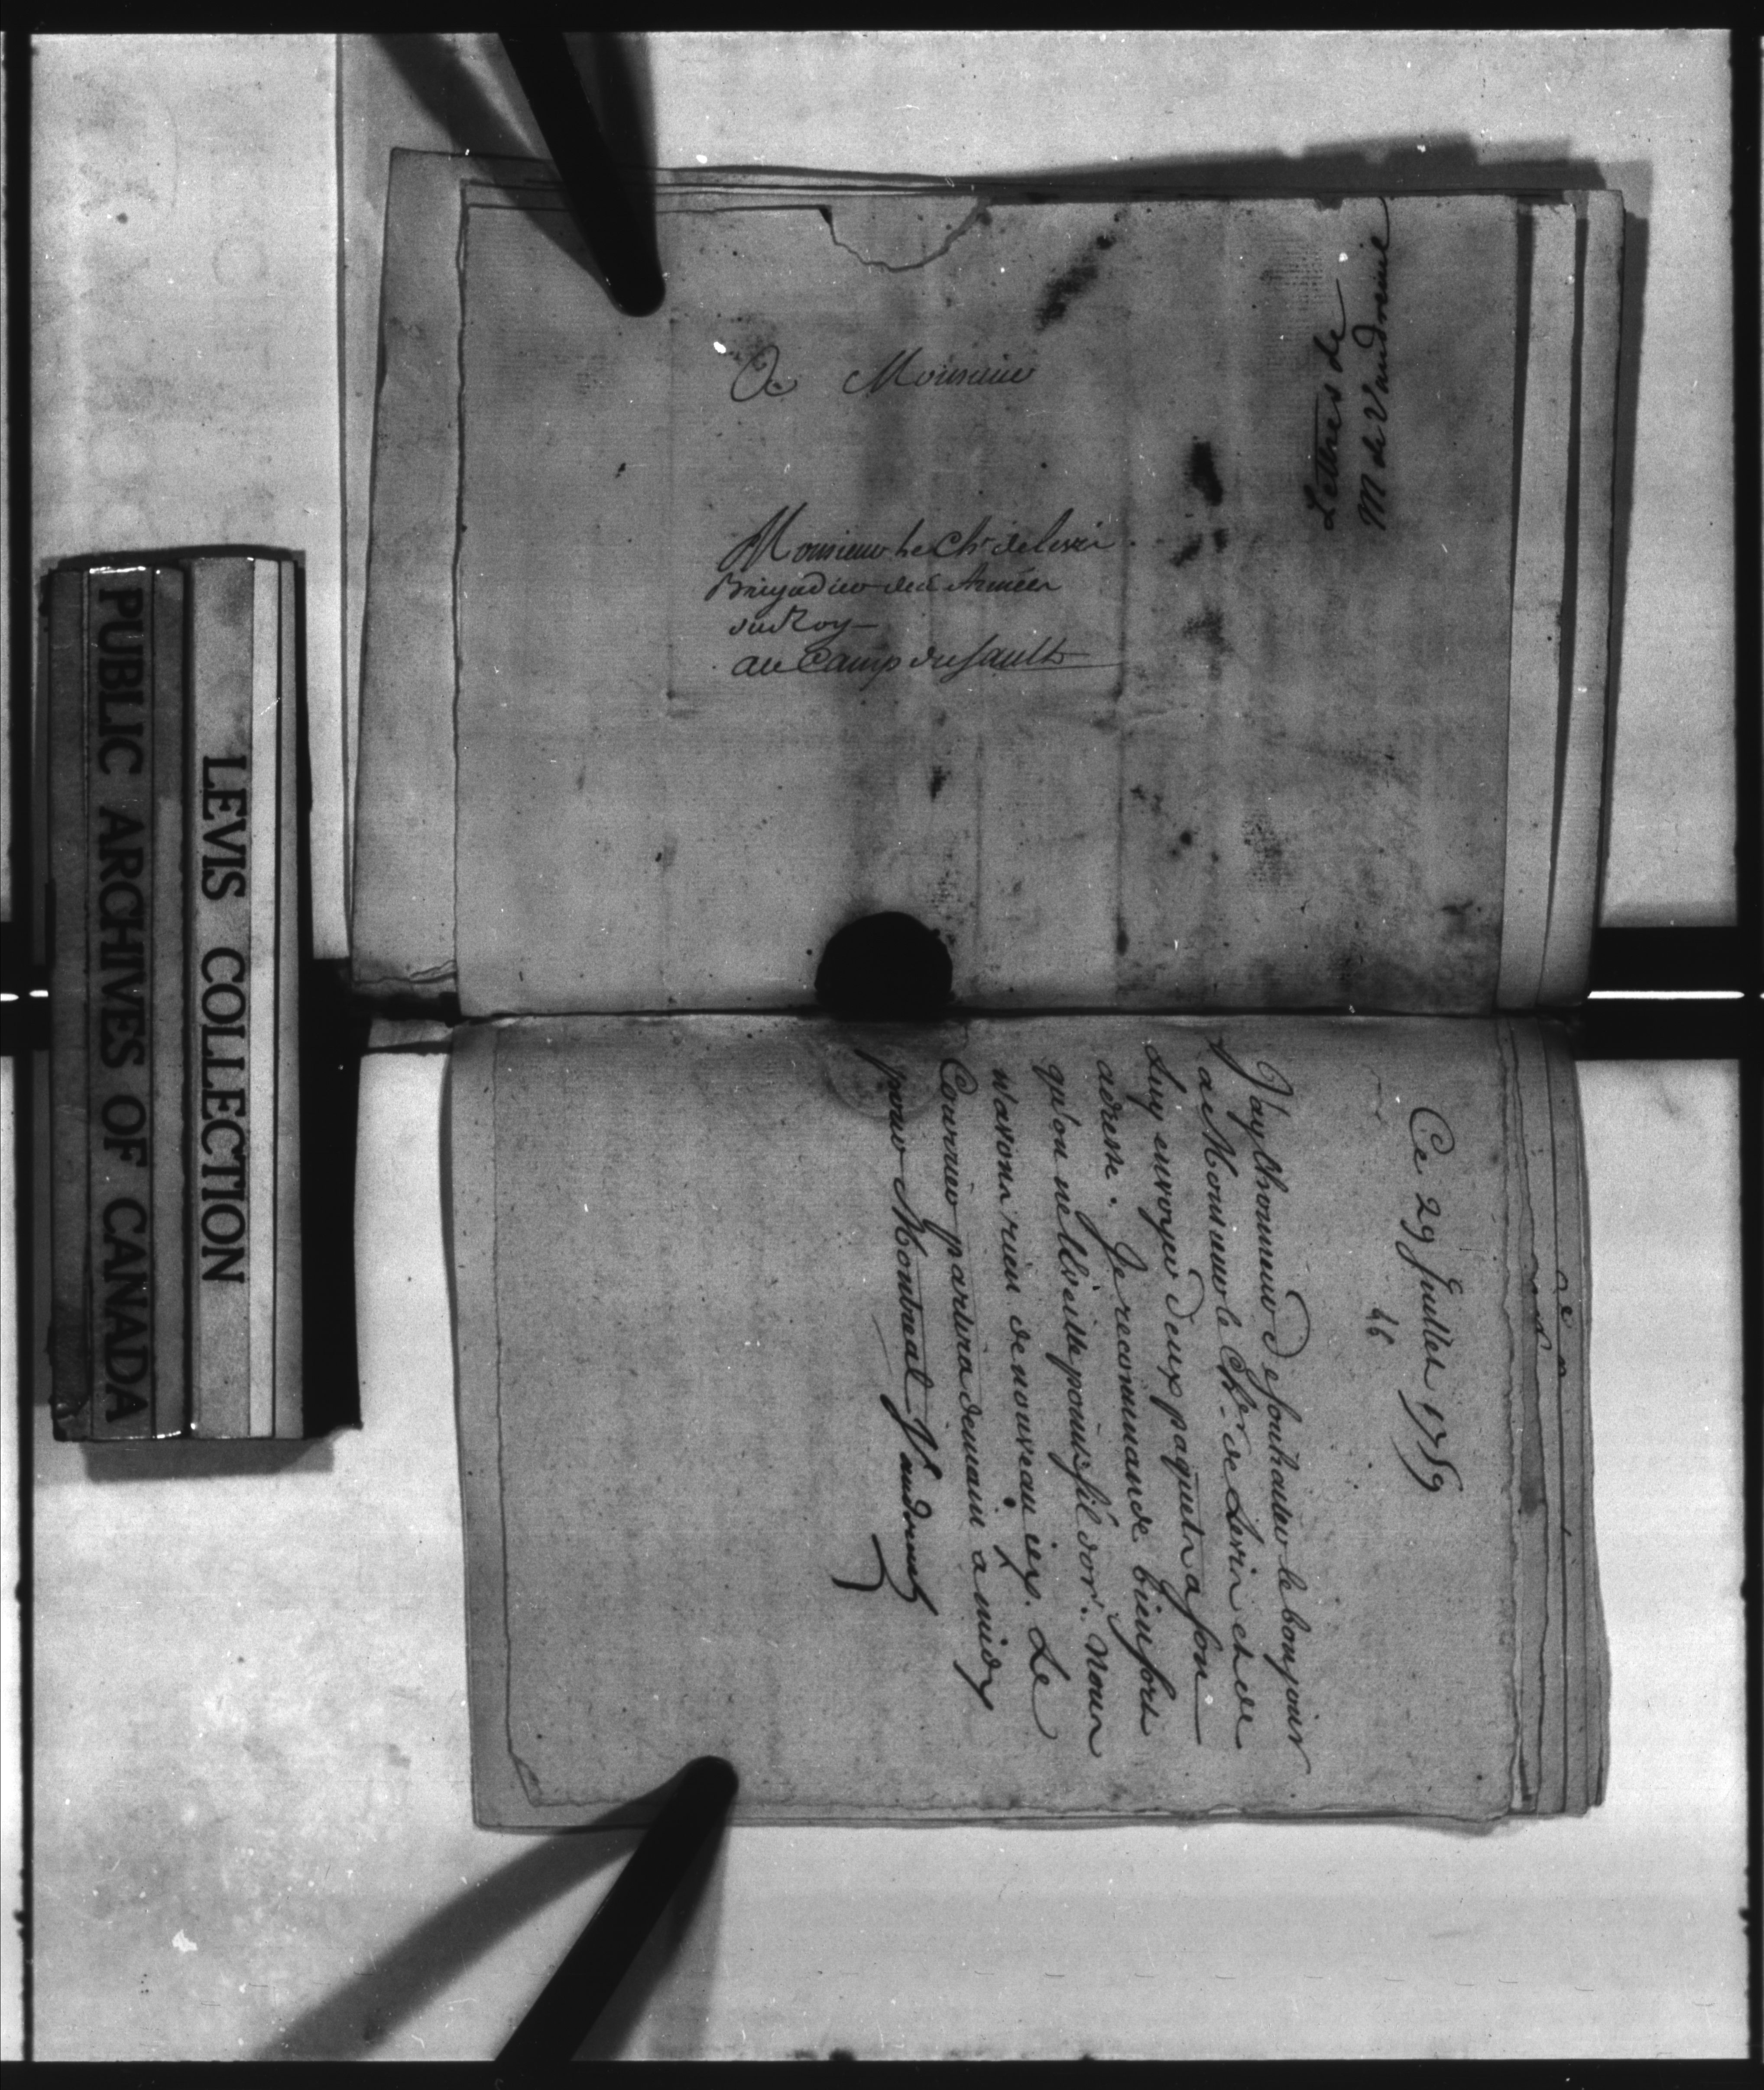 A Monsieur
Monsieur Le Chr de Levis.
Brigadier des Armées
du Roy
au Camp du Sault
Lettres de
M de Vaudreuil
PUBLIC ARCHIVES OF CANADA
LEVIS COLLECTION
Ce 29 Juillet 1759
46
J'ay L'honneur De souhaiter le bonjour
a Monsieur le Cher de Levis et de
Luy envoyer Deux paquets a son
adresse. Je recommande bien fort
qu'on ne l'éveille point s'il dort. Nous
n'avons rien de nouveau icy. Le
Courrier partira demain a midy
pour Montreal Vaudreuil